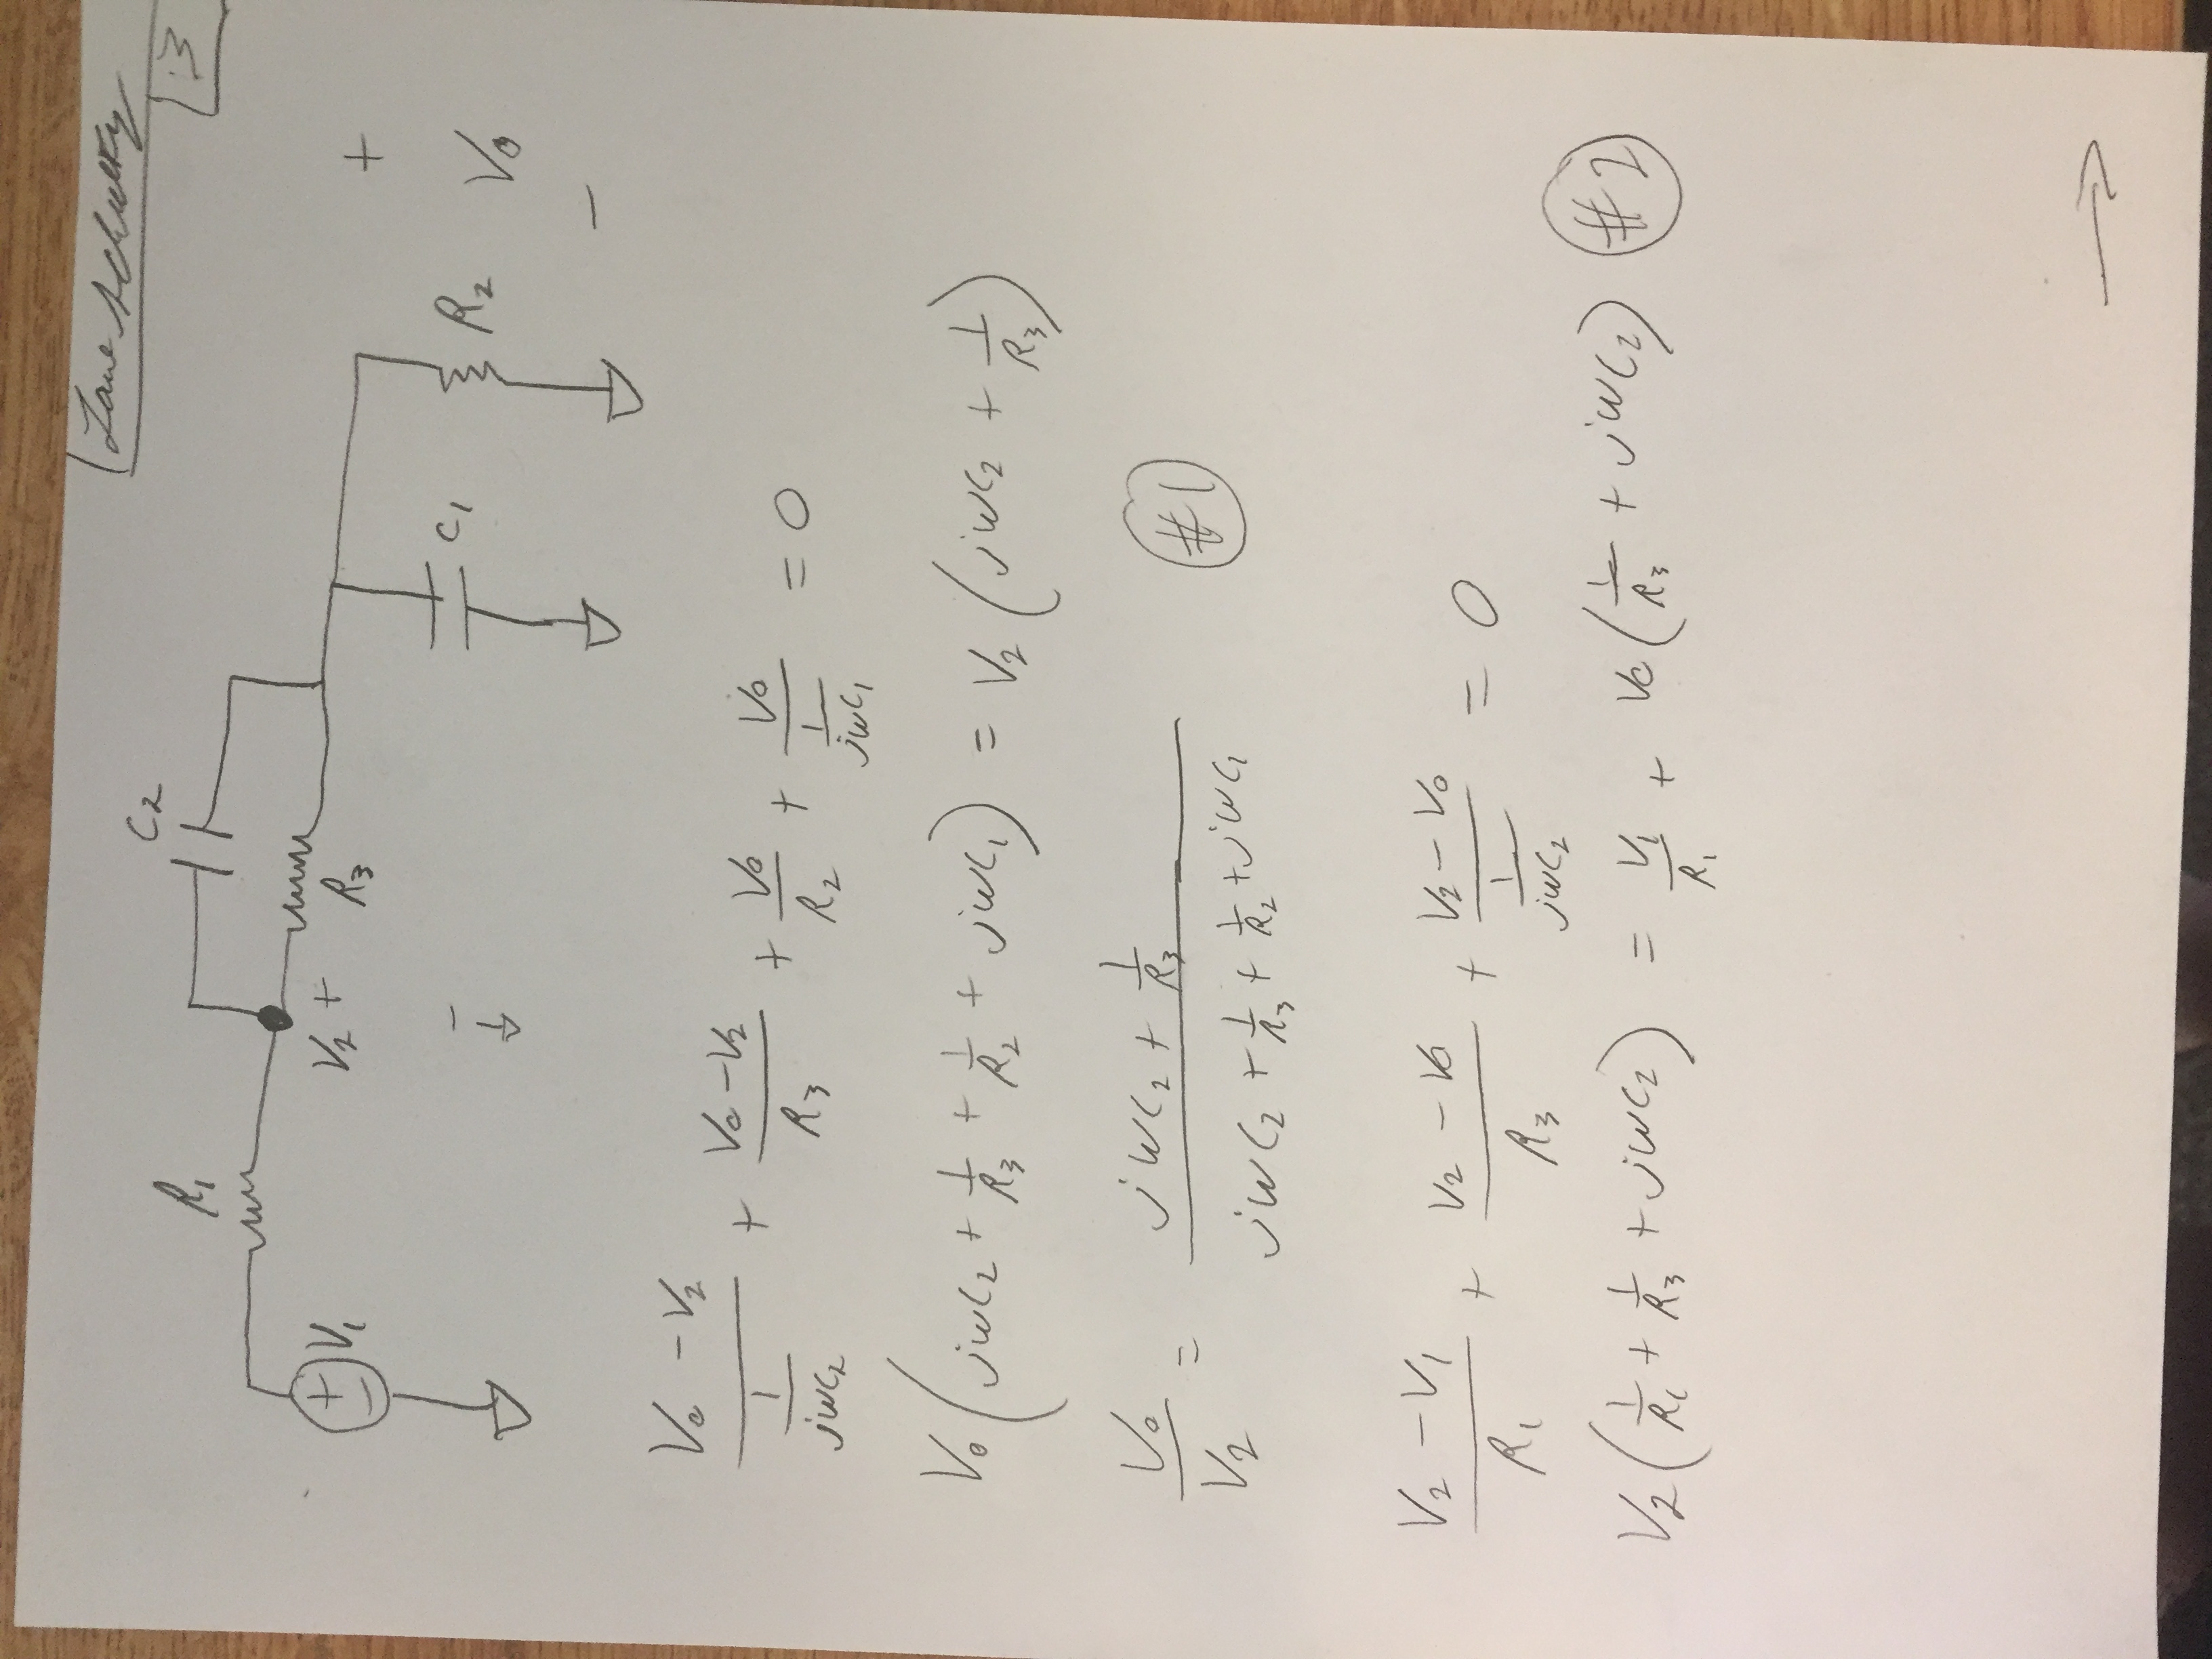 Lane
3
C2
R1
V1
V2 +
R3
-
C1
R2
+
V0
-
(V0 - V2)/(1/(jwC2)) + (V0 - V2)/R3 + V0/R2 + V0/(1/(jwC1)) = 0
V0 (jwC2 + 1/R3 + 1/R2 + jwC1) = V2 (jwC2 + 1/R3)
V0/V2 = (jwC2 + 1/R3)/(jwC2 + 1/R3 + 1/R2 + jwC1) #1
(V2 - V1)/R1 + (V2 - V0)/R3 + (V2 - V0)/(1/(jwC2)) = 0
V2 (1/R1 + 1/R3 + jwC2) = V1/R1 + V0 (1/R3 + jwC2) #2
→